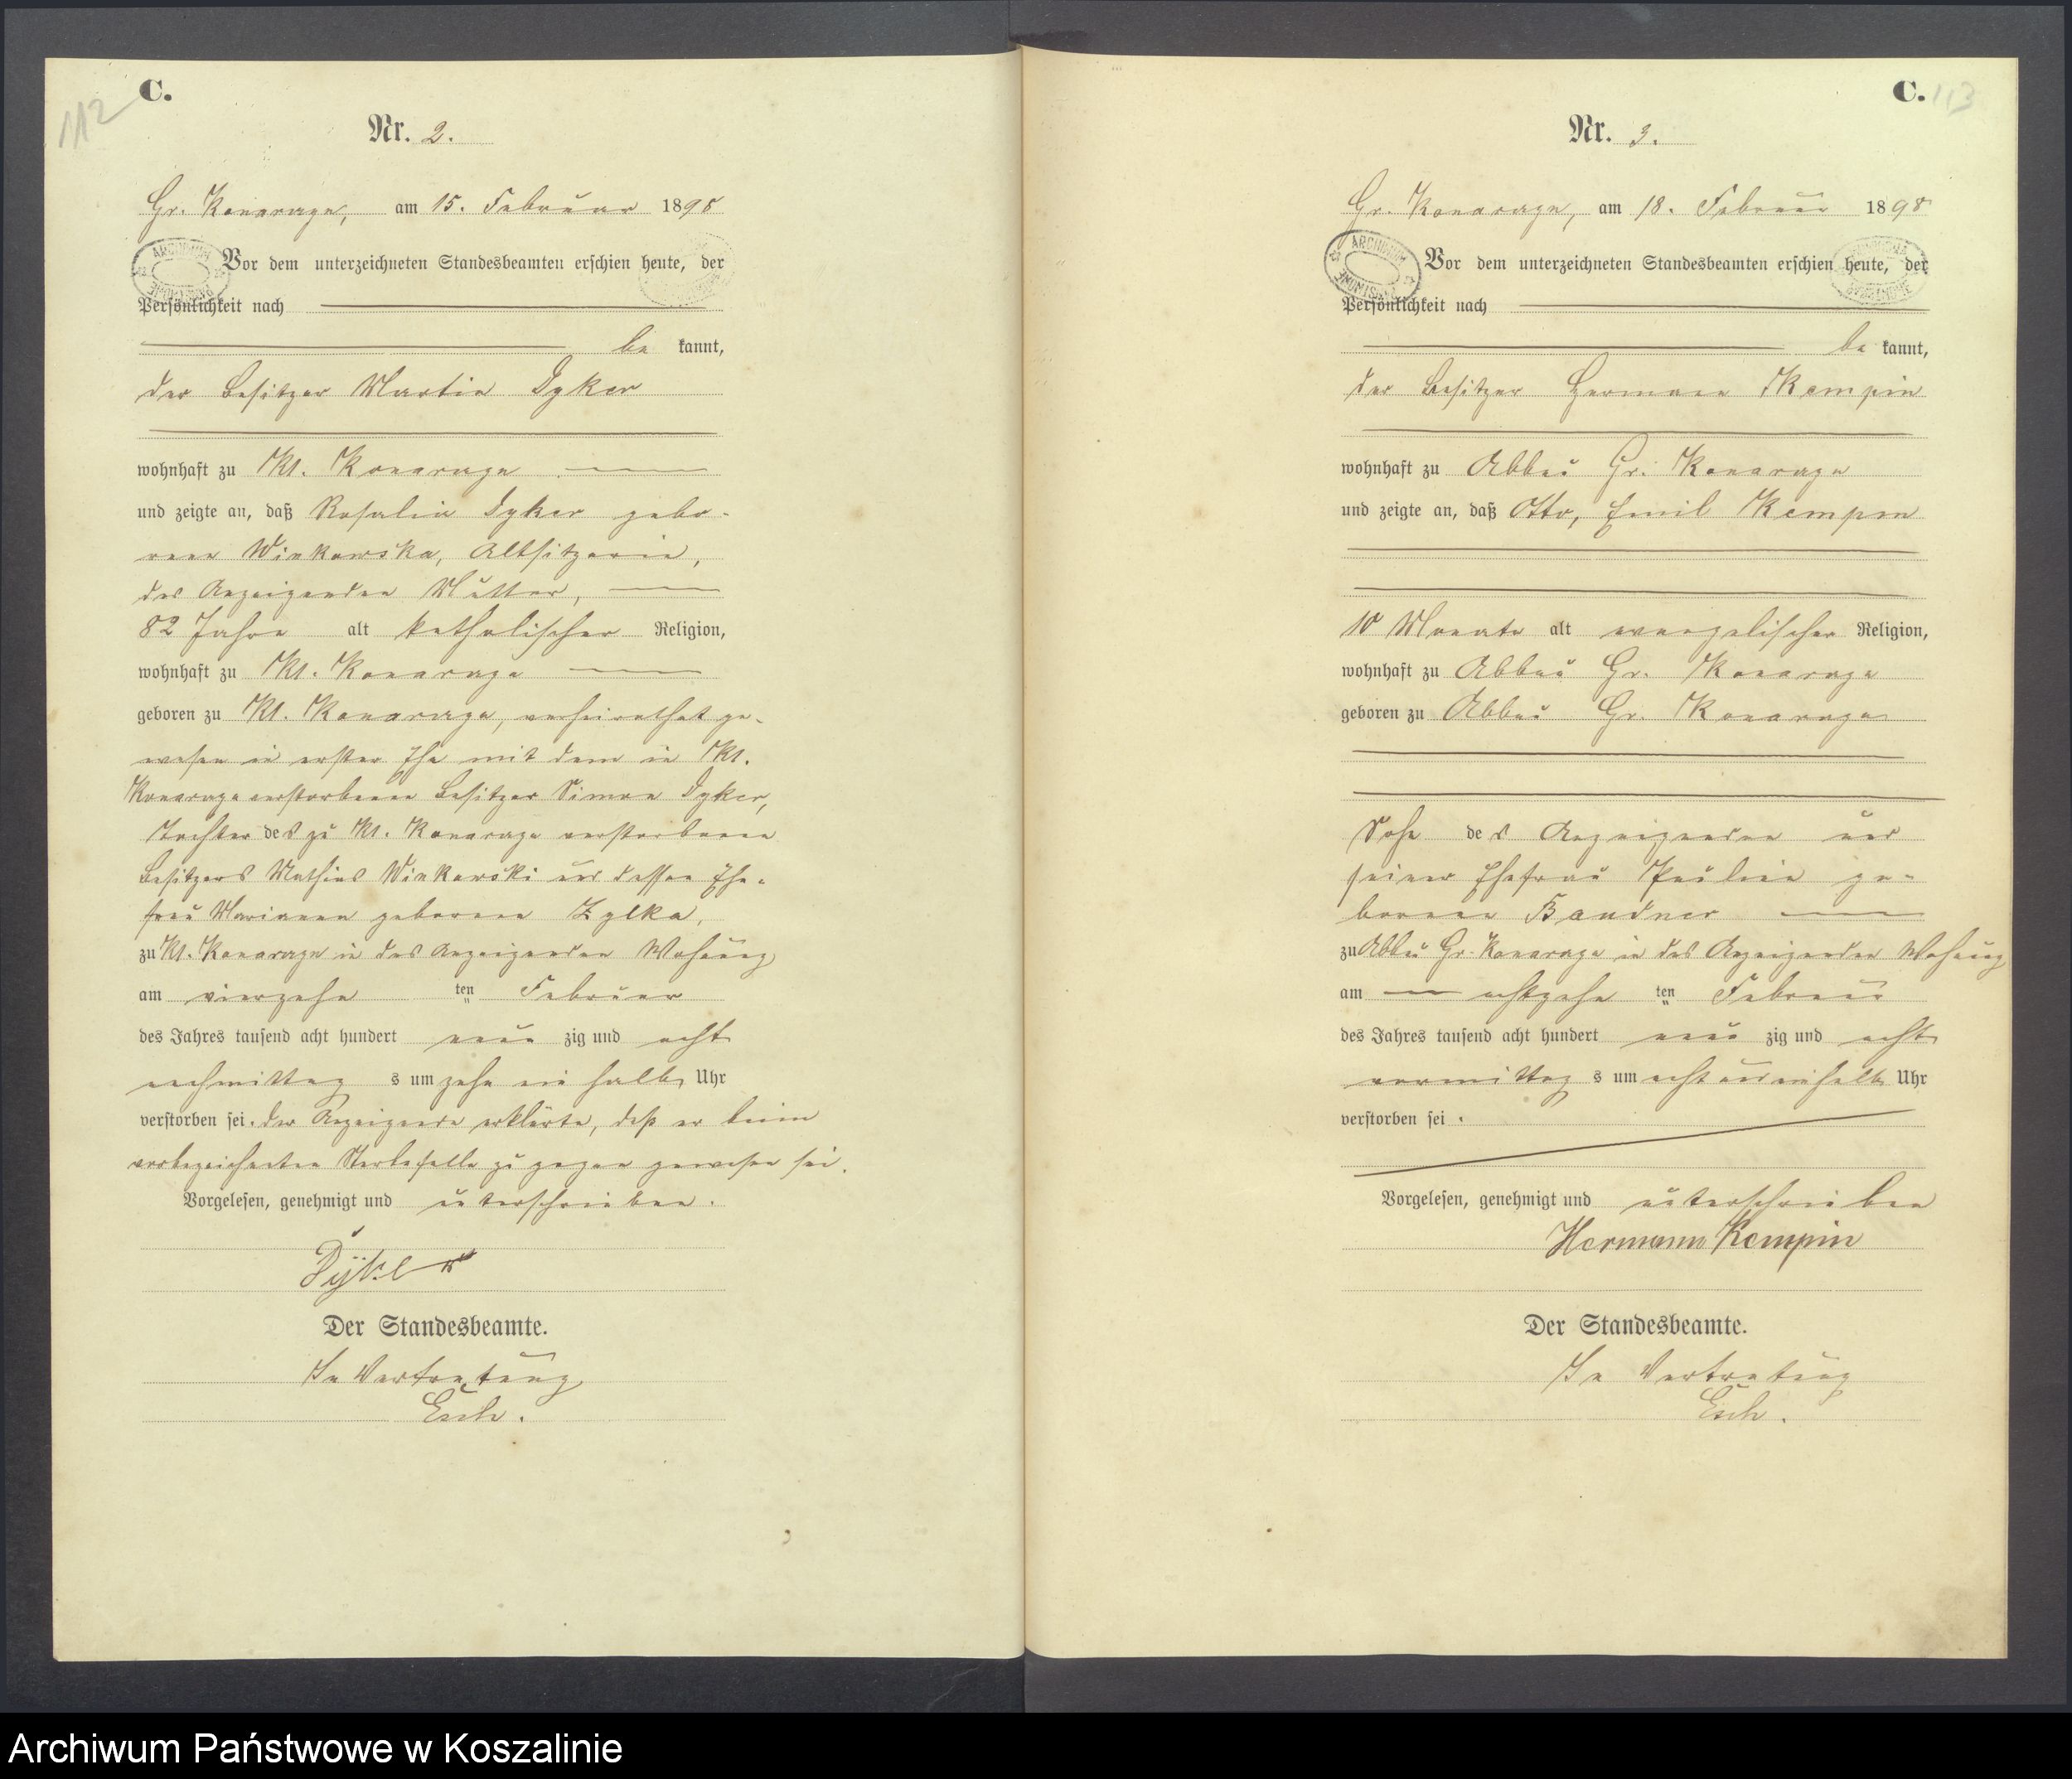 112
C.
Nr. 2.
Gr. Konarage, am 15. Februar 1898
Vor dem unterzeichneten Standesbeamten erschien heute, der
Persönlichkeit nach
be kannt,
der Besitzer Martin Dyker
wohnhaft zu Kl. Konarage
und zeigte an, daß Rosalie Dyker gebo-
rene Winkowska, Altsitzerin,
des Anzeigenden Mutter,
82 Jahre alt katholischer Religion,
wohnhaft zu Kl. Konarage
geboren zu Kl. Konarage, verheirathet ge-
wesen in erster Ehe mit dem in Kl.
Konarage verstorbenen Besitzer Simon Dyker,
Tochter des zu Kl. Konarage verstorbenen
Besitzers Mathias Winkowski und dessen Ehe-
frau Marianna geborene Zylka,
zu Kl. Konarage in des Anzeigenden Wohnung
am vierzehn ten Februar
des Jahres tausend acht hundert neun zig und acht
nachmittag s um zehn ein halb Uhr
verstorben sei. Der Anzeigende erklärte, daß er beim
vorbezeichneten Sterbefalle zu gegen gewesen sei.
Vorgelesen, genehmigt und unterschrieben.
Dÿker
Der Standesbeamte.
In Vertretung
Esch.
C. 113
Nr. 3.
Gr. Konarage, am 18. Februar 1898
Vor dem unterzeichneten Standesbeamten erschien heute, der
Persönlichkeit nach
be kannt,
der Besitzer Hermann Kempin
wohnhaft zu Abbau Gr. Konarage
und zeigte an, daß Otto, Emil Kempin
10 Monate alt evangelischer Religion,
wohnhaft zu Abbau Gr. Konarage
geboren zu Abbau Gr. Konarage
Sohn des Anzeigenden und
seiner Ehefrau Pauline ge-
borene Bandner
zu Abbau Gr. Konarage in des Anzeigenden Wohnung
am achtzehn ten Februar
des Jahres tausend acht hundert neun zig und acht
vormittag s um acht und einhalb Uhr
verstorben sei.
Vorgelesen, genehmigt und unterschrieben
Hermann Kempin
Der Standesbeamte.
In Vertretung
Esch.
Archiwum Państwowe w Koszalinie